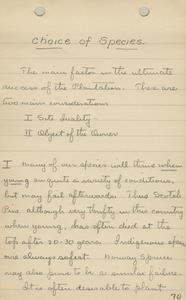 Choice of Species.
The main factor in the ultimate
success of the Plantation. There are
two main considerations
I Site Quality
II Object of the Owner
I Many of our species will thrive when
young on quite a variety of conditions,
but may fail afterwards. Thus Scotch
Pine although very thrifty in this country
when young, has often died at the
top after 20-30 years. Indigenous species
are always safest. Norway Spruce
may also prove to be a similar failure.
It is often desirable to plant
70